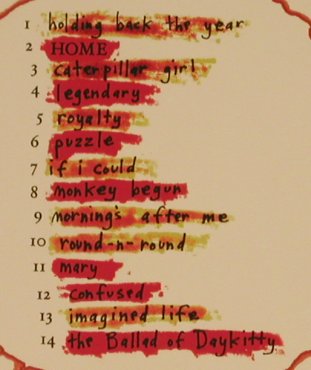 1 holding back the year
2 HOME
3 caterpillar girl
4 legendary
5 royalty
6 puzzle
7 if i could
8 monkey begun
9 morning's after me
10 round-n-round
11 mary
12 confused
13 imagined life
14 the Ballad of Daykitty